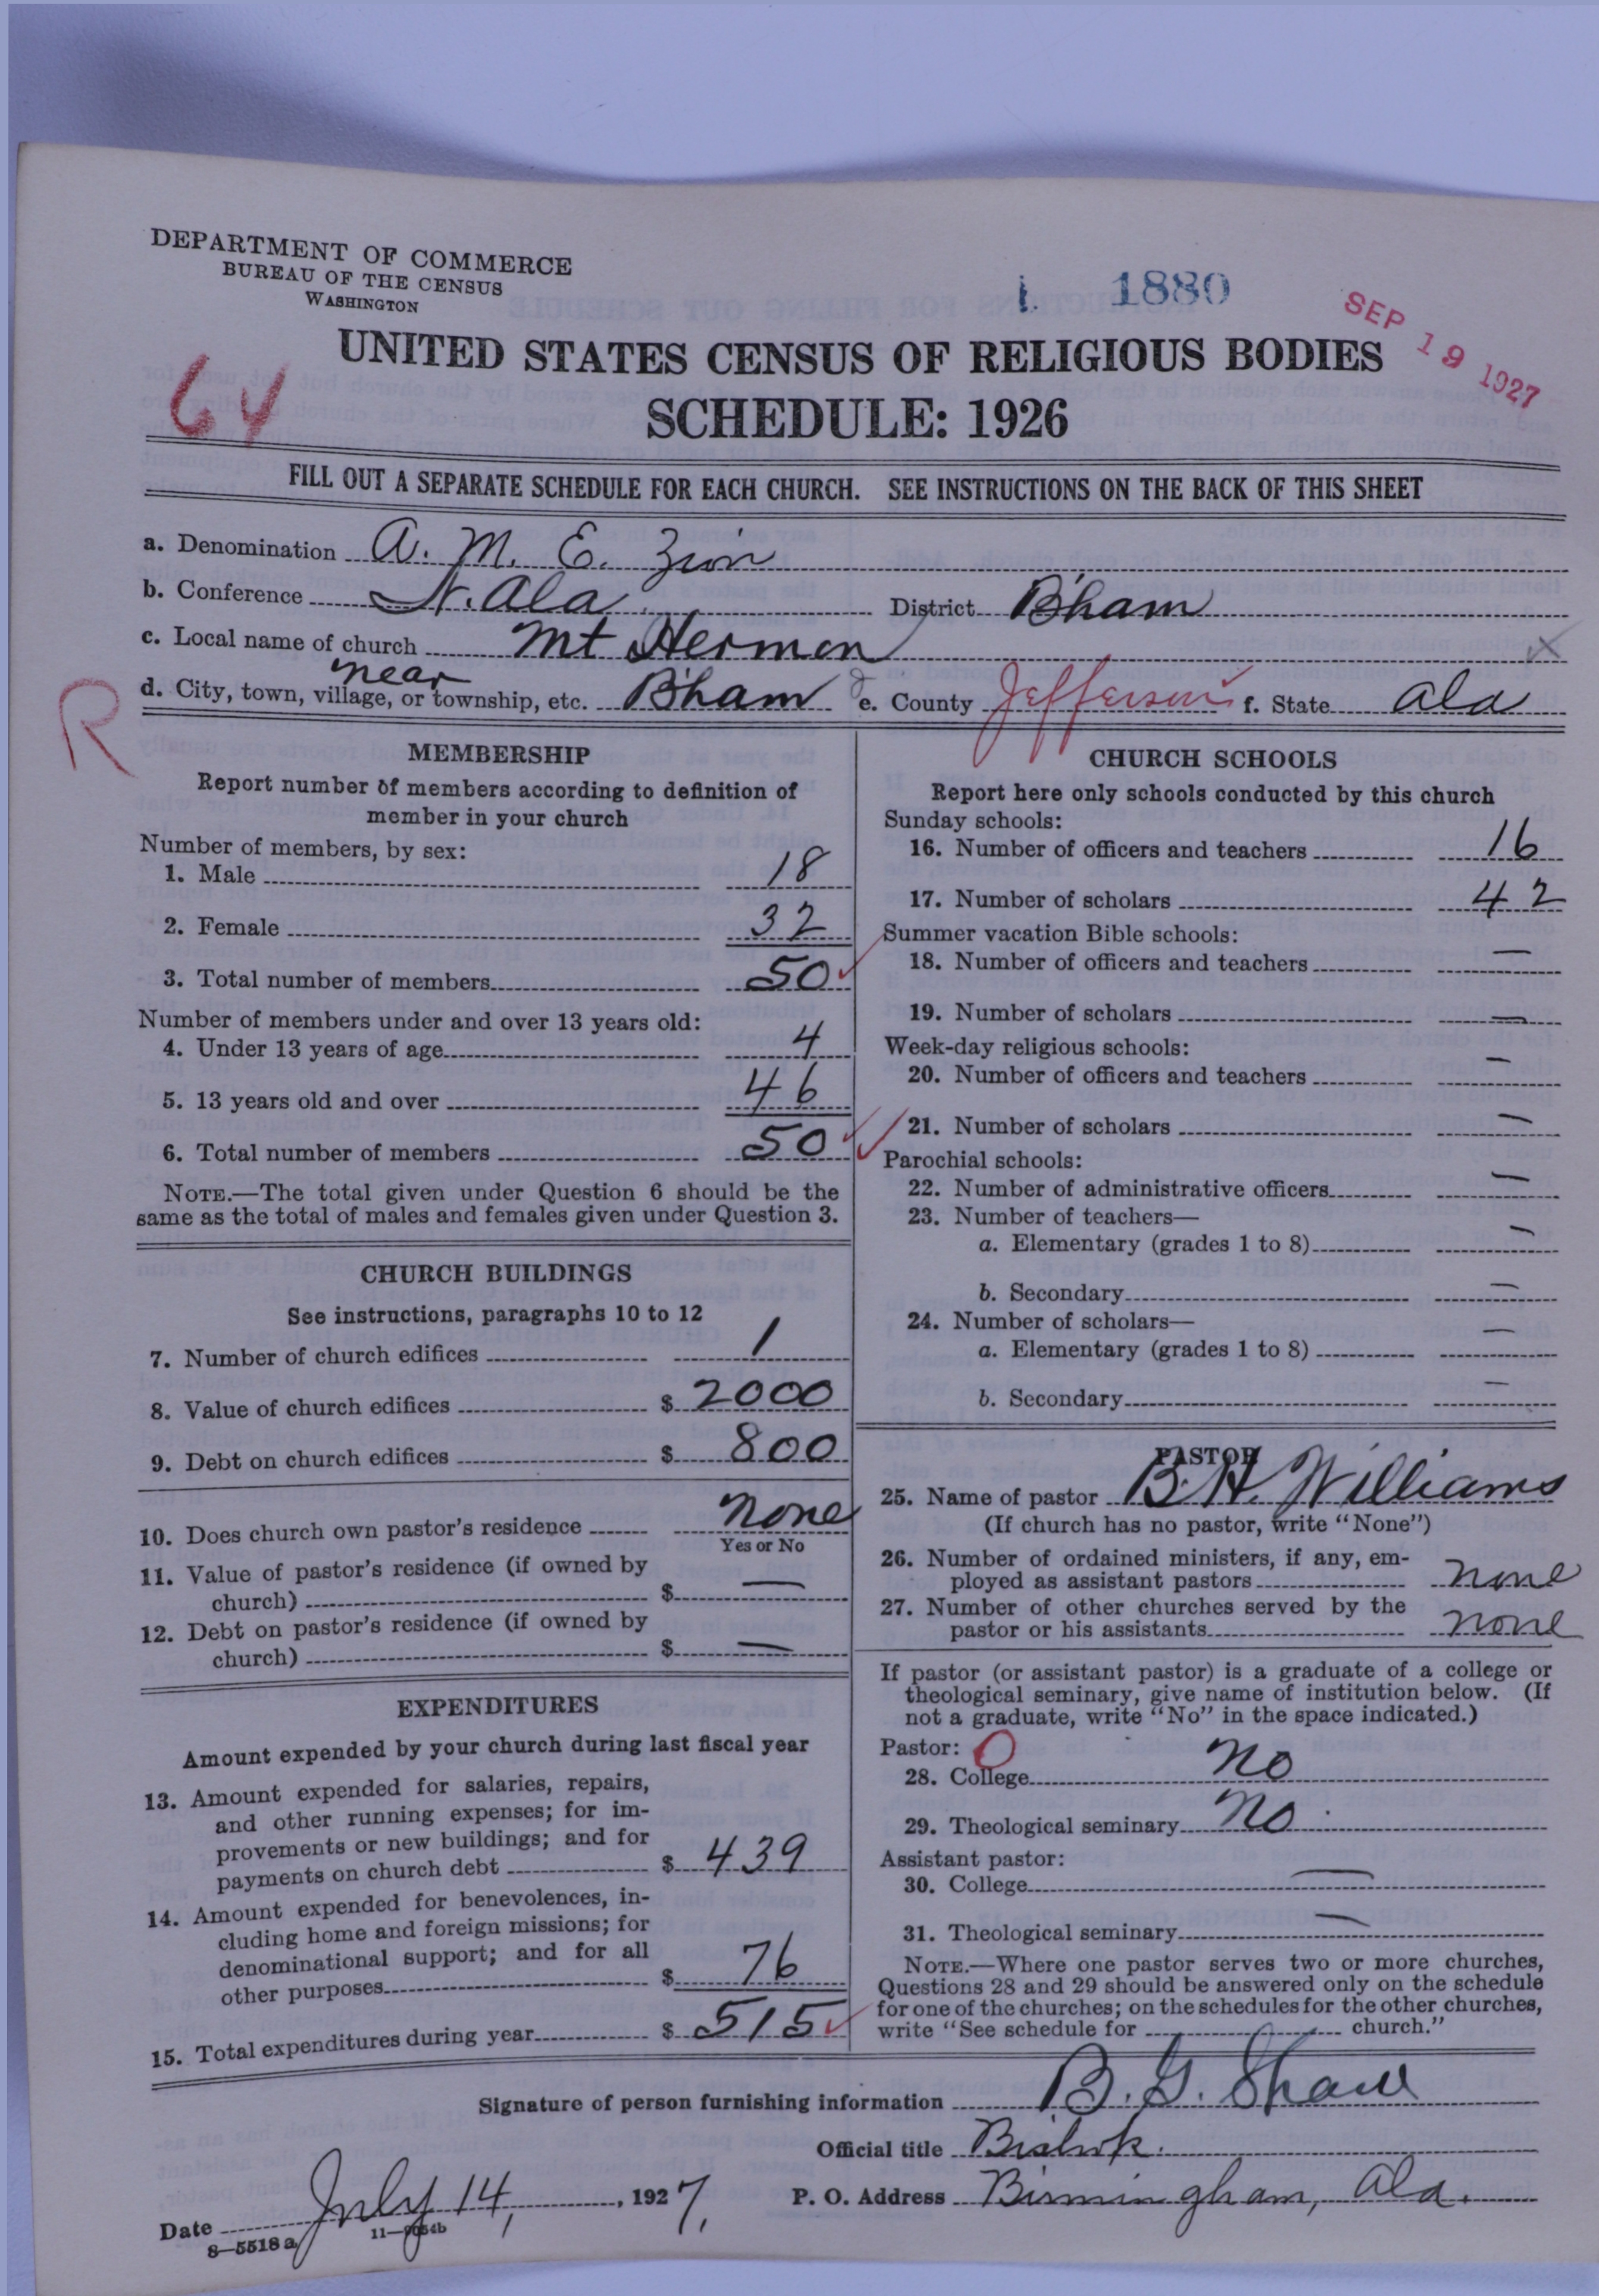 DEPARTMENT OF COMMERCE
BUREAU OF THE CENSUS
WASHINGTON
1880
SEP 19 1927
UNITED STATES CENSUS OF RELIGIOUS BODIES
64
SCHEDULE: 1926
FILL OUT A SEPARATE SCHEDULE FOR EACH CHURCH. SEE INSTRUCTIONS ON THE BACK OF THIS SHEET
a. Denomination A. M. E. Zion
b. Conference N. Ala. District B'ham
c. Local name of church Mt Hermon
near
d. City, town, village, or township, etc. B'ham e. County Jefferson f. State Ala
R
MEMBERSHIP
Report number of members according to definition of
member in your church
Number of members, by sex:
1. Male 18
2. Female 32
3. Total number of members 50
Number of members under and over 13 years old:
4. Under 13 years of age 4
5. 13 years old and over 46
6. Total number of members 50
NOTE.—The total given under Question 6 should be the
same as the total of males and females given under Question 3.
CHURCH BUILDINGS
See instructions, paragraphs 10 to 12
7. Number of church edifices 1
8. Value of church edifices $ 2000
9. Debt on church edifices $ 800
10. Does church own pastor's residence none
Yes or No
11. Value of pastor's residence (if owned by
church) $ —
12. Debt on pastor's residence (if owned by
church) $ —
EXPENDITURES
Amount expended by your church during last fiscal year
13. Amount expended for salaries, repairs,
and other running expenses; for im-
provements or new buildings; and for
payments on church debt $ 439
14. Amount expended for benevolences, in-
cluding home and foreign missions; for
denominational support; and for all
other purposes $ 76
15. Total expenditures during year $ 515
CHURCH SCHOOLS
Report here only schools conducted by this church
Sunday schools:
16. Number of officers and teachers 16
17. Number of scholars 42
Summer vacation Bible schools:
18. Number of officers and teachers —
19. Number of scholars —
Week-day religious schools:
20. Number of officers and teachers —
21. Number of scholars —
Parochial schools:
22. Number of administrative officers —
23. Number of teachers—
a. Elementary (grades 1 to 8) —
b. Secondary —
24. Number of scholars—
a. Elementary (grades 1 to 8) —
b. Secondary —
PASTOR
25. Name of pastor B. H. Williams
(If church has no pastor, write "None")
26. Number of ordained ministers, if any, em-
ployed as assistant pastors none
27. Number of other churches served by the
pastor or his assistants none
If pastor (or assistant pastor) is a graduate of a college or
theological seminary, give name of institution below. (If
not a graduate, write "No" in the space indicated.)
Pastor: O
28. College No
29. Theological seminary No.
Assistant pastor:
30. College —
31. Theological seminary —
NOTE.—Where one pastor serves two or more churches,
Questions 28 and 29 should be answered only on the schedule
for one of the churches; on the schedules for the other churches,
write "See schedule for church."
Signature of person furnishing information B. G. Shaw
Official title Bishop.
Date July 14, 1927. P. O. Address Birmingham, Ala.
8—5518a 11—9054b